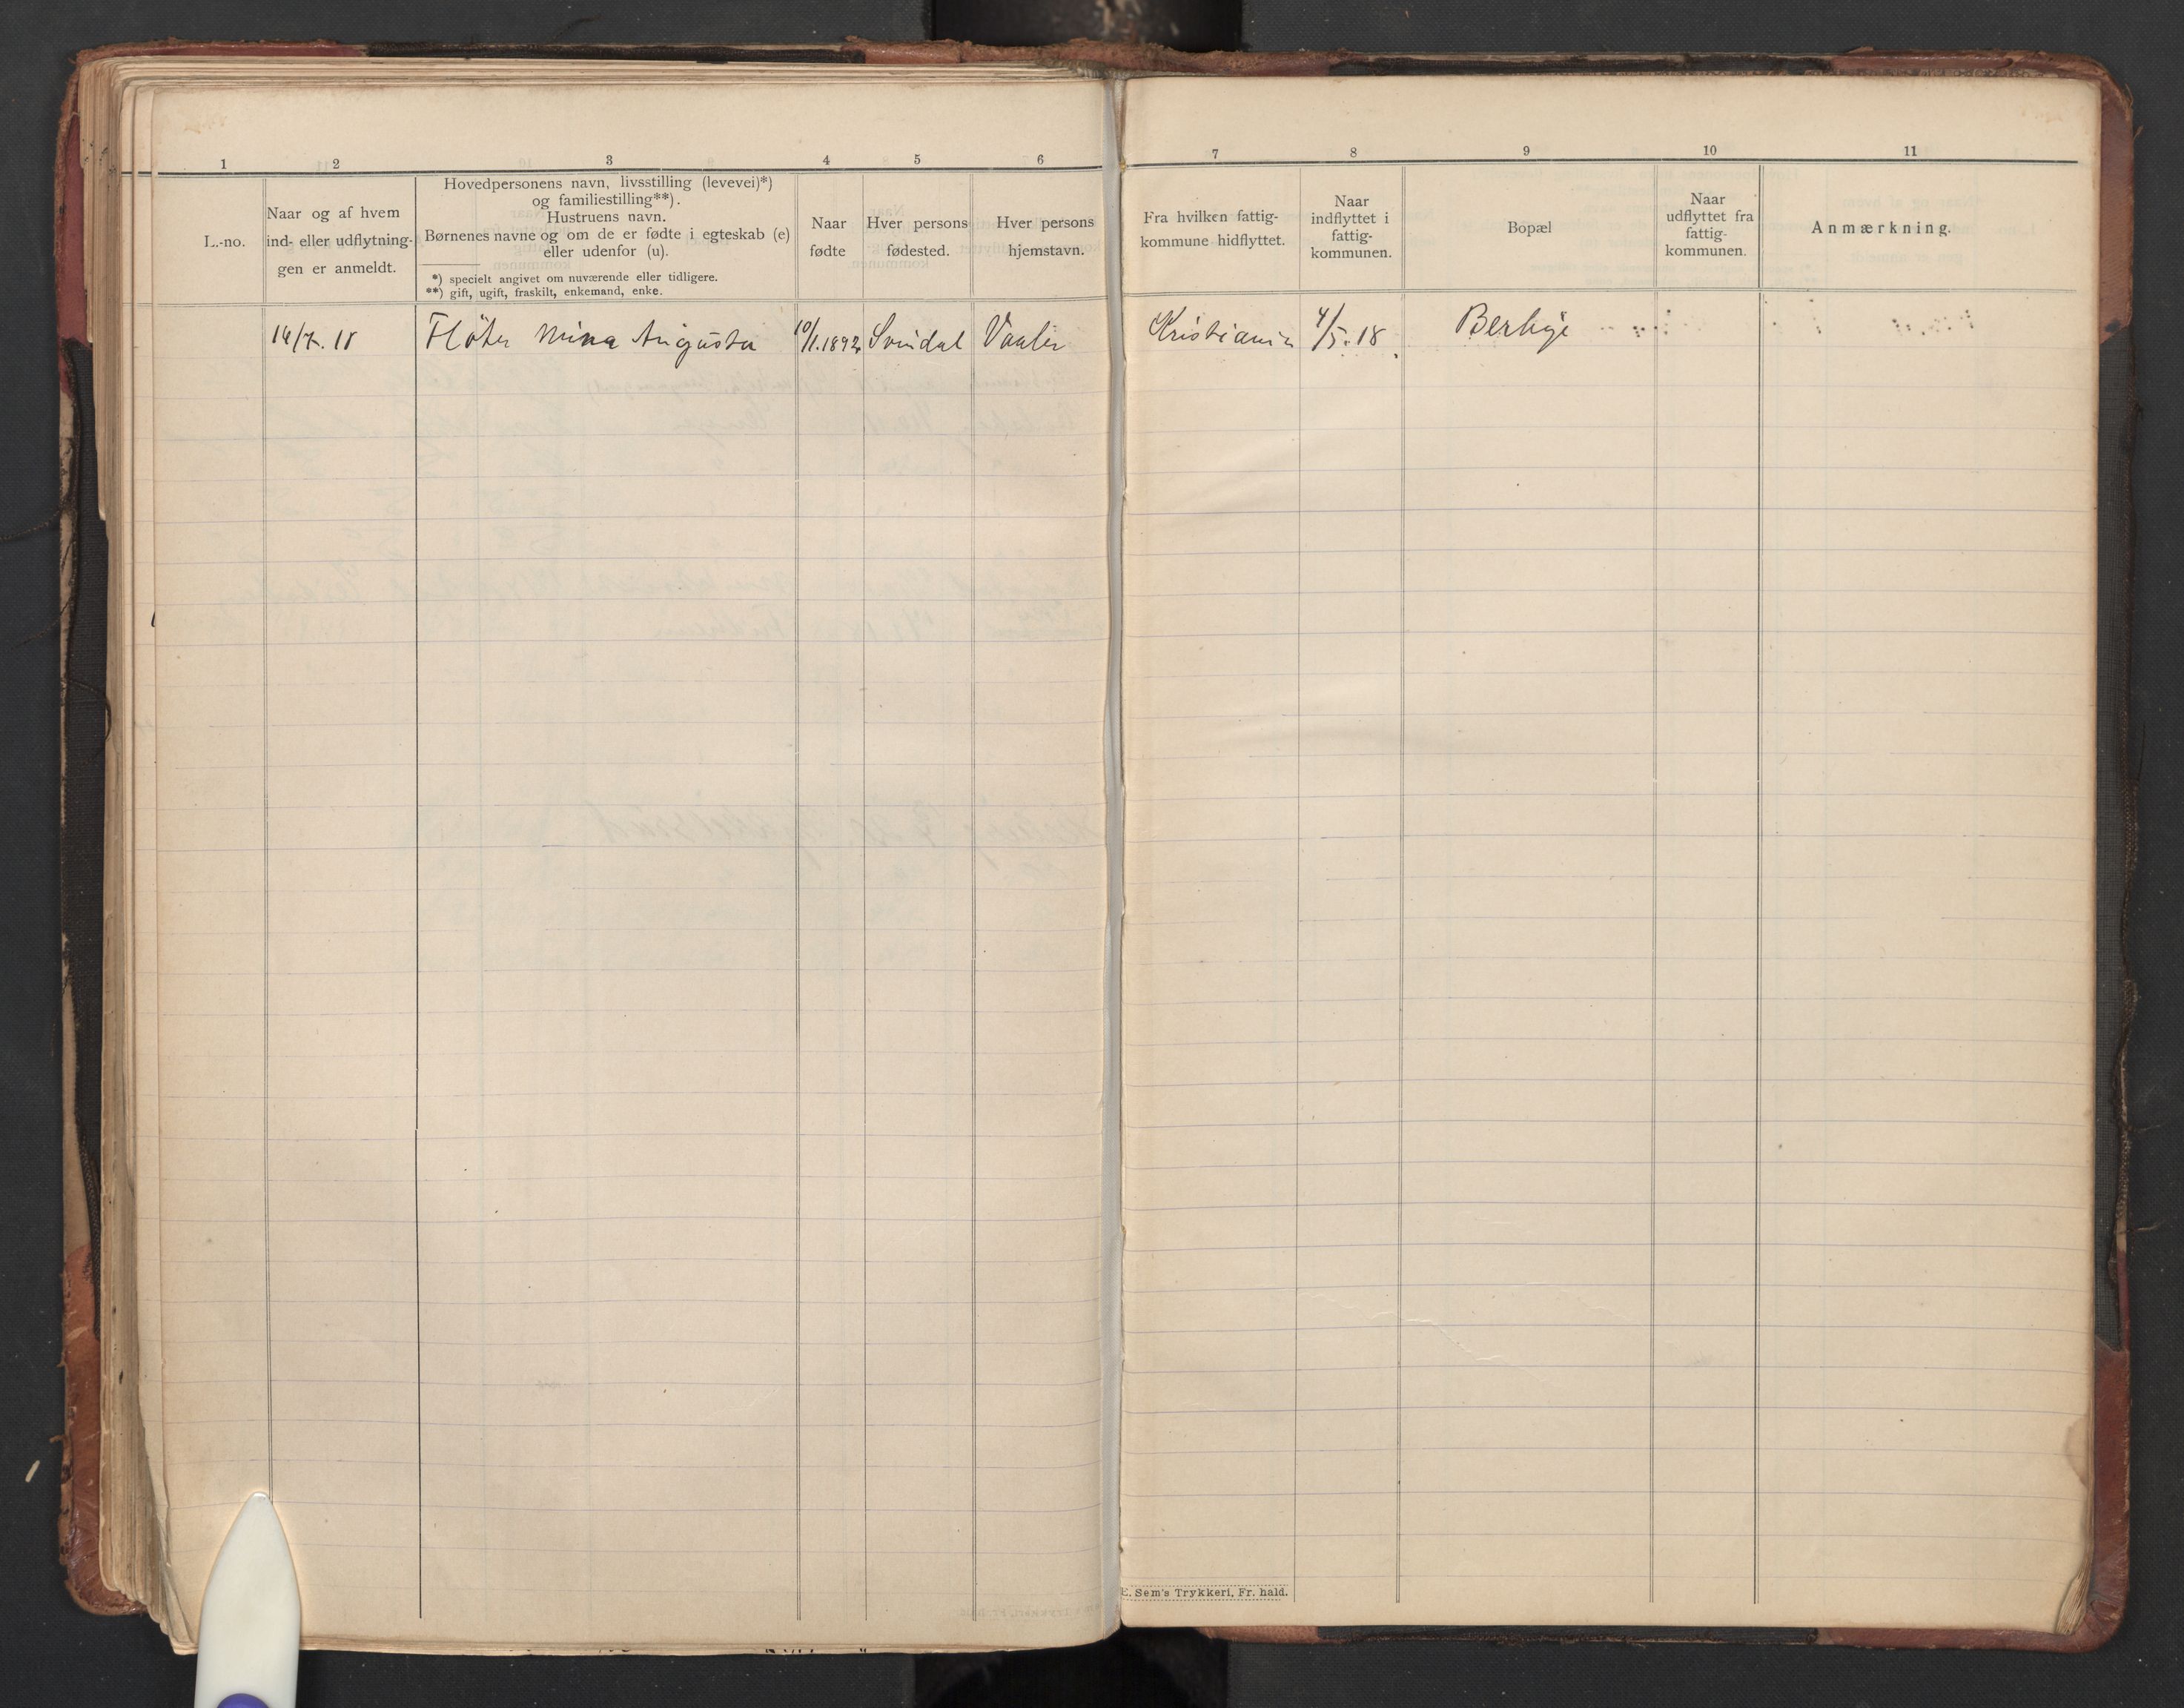 1 2 3 4 5 6 7 8 9 10 11
L.-no.
Naar og af hvem
ind- eller udflytnin-
gen er anmeldt.
Hovedpersonens navn, livsstilling (levevei)*)
og familiestilling**).
Hustruens navn.
Børnenes navne og om de er fødte i egteskab (e)
eller udenfor (u).
*) specielt angivet om nuværende eller tidligere.
**) gift, ugift, fraskilt, enkemand, enke.
Naar
fødte
Hver persons
fødested.
Hver persons
hjemstavn.
Fra hvilken fattig-
kommune hidflyttet.
Naar
indflyttet i
fattig-
kommunen.
Bopæl
Naar
udflyttet fra
fattig-
kommunen.
Anmærkning.
14/7. 18 Fløter Mina Augusta 10/1.1892 Svindal Vaaler Kristiania 4/5. 18
E. Sem's Trykkeri, Fr. hald.